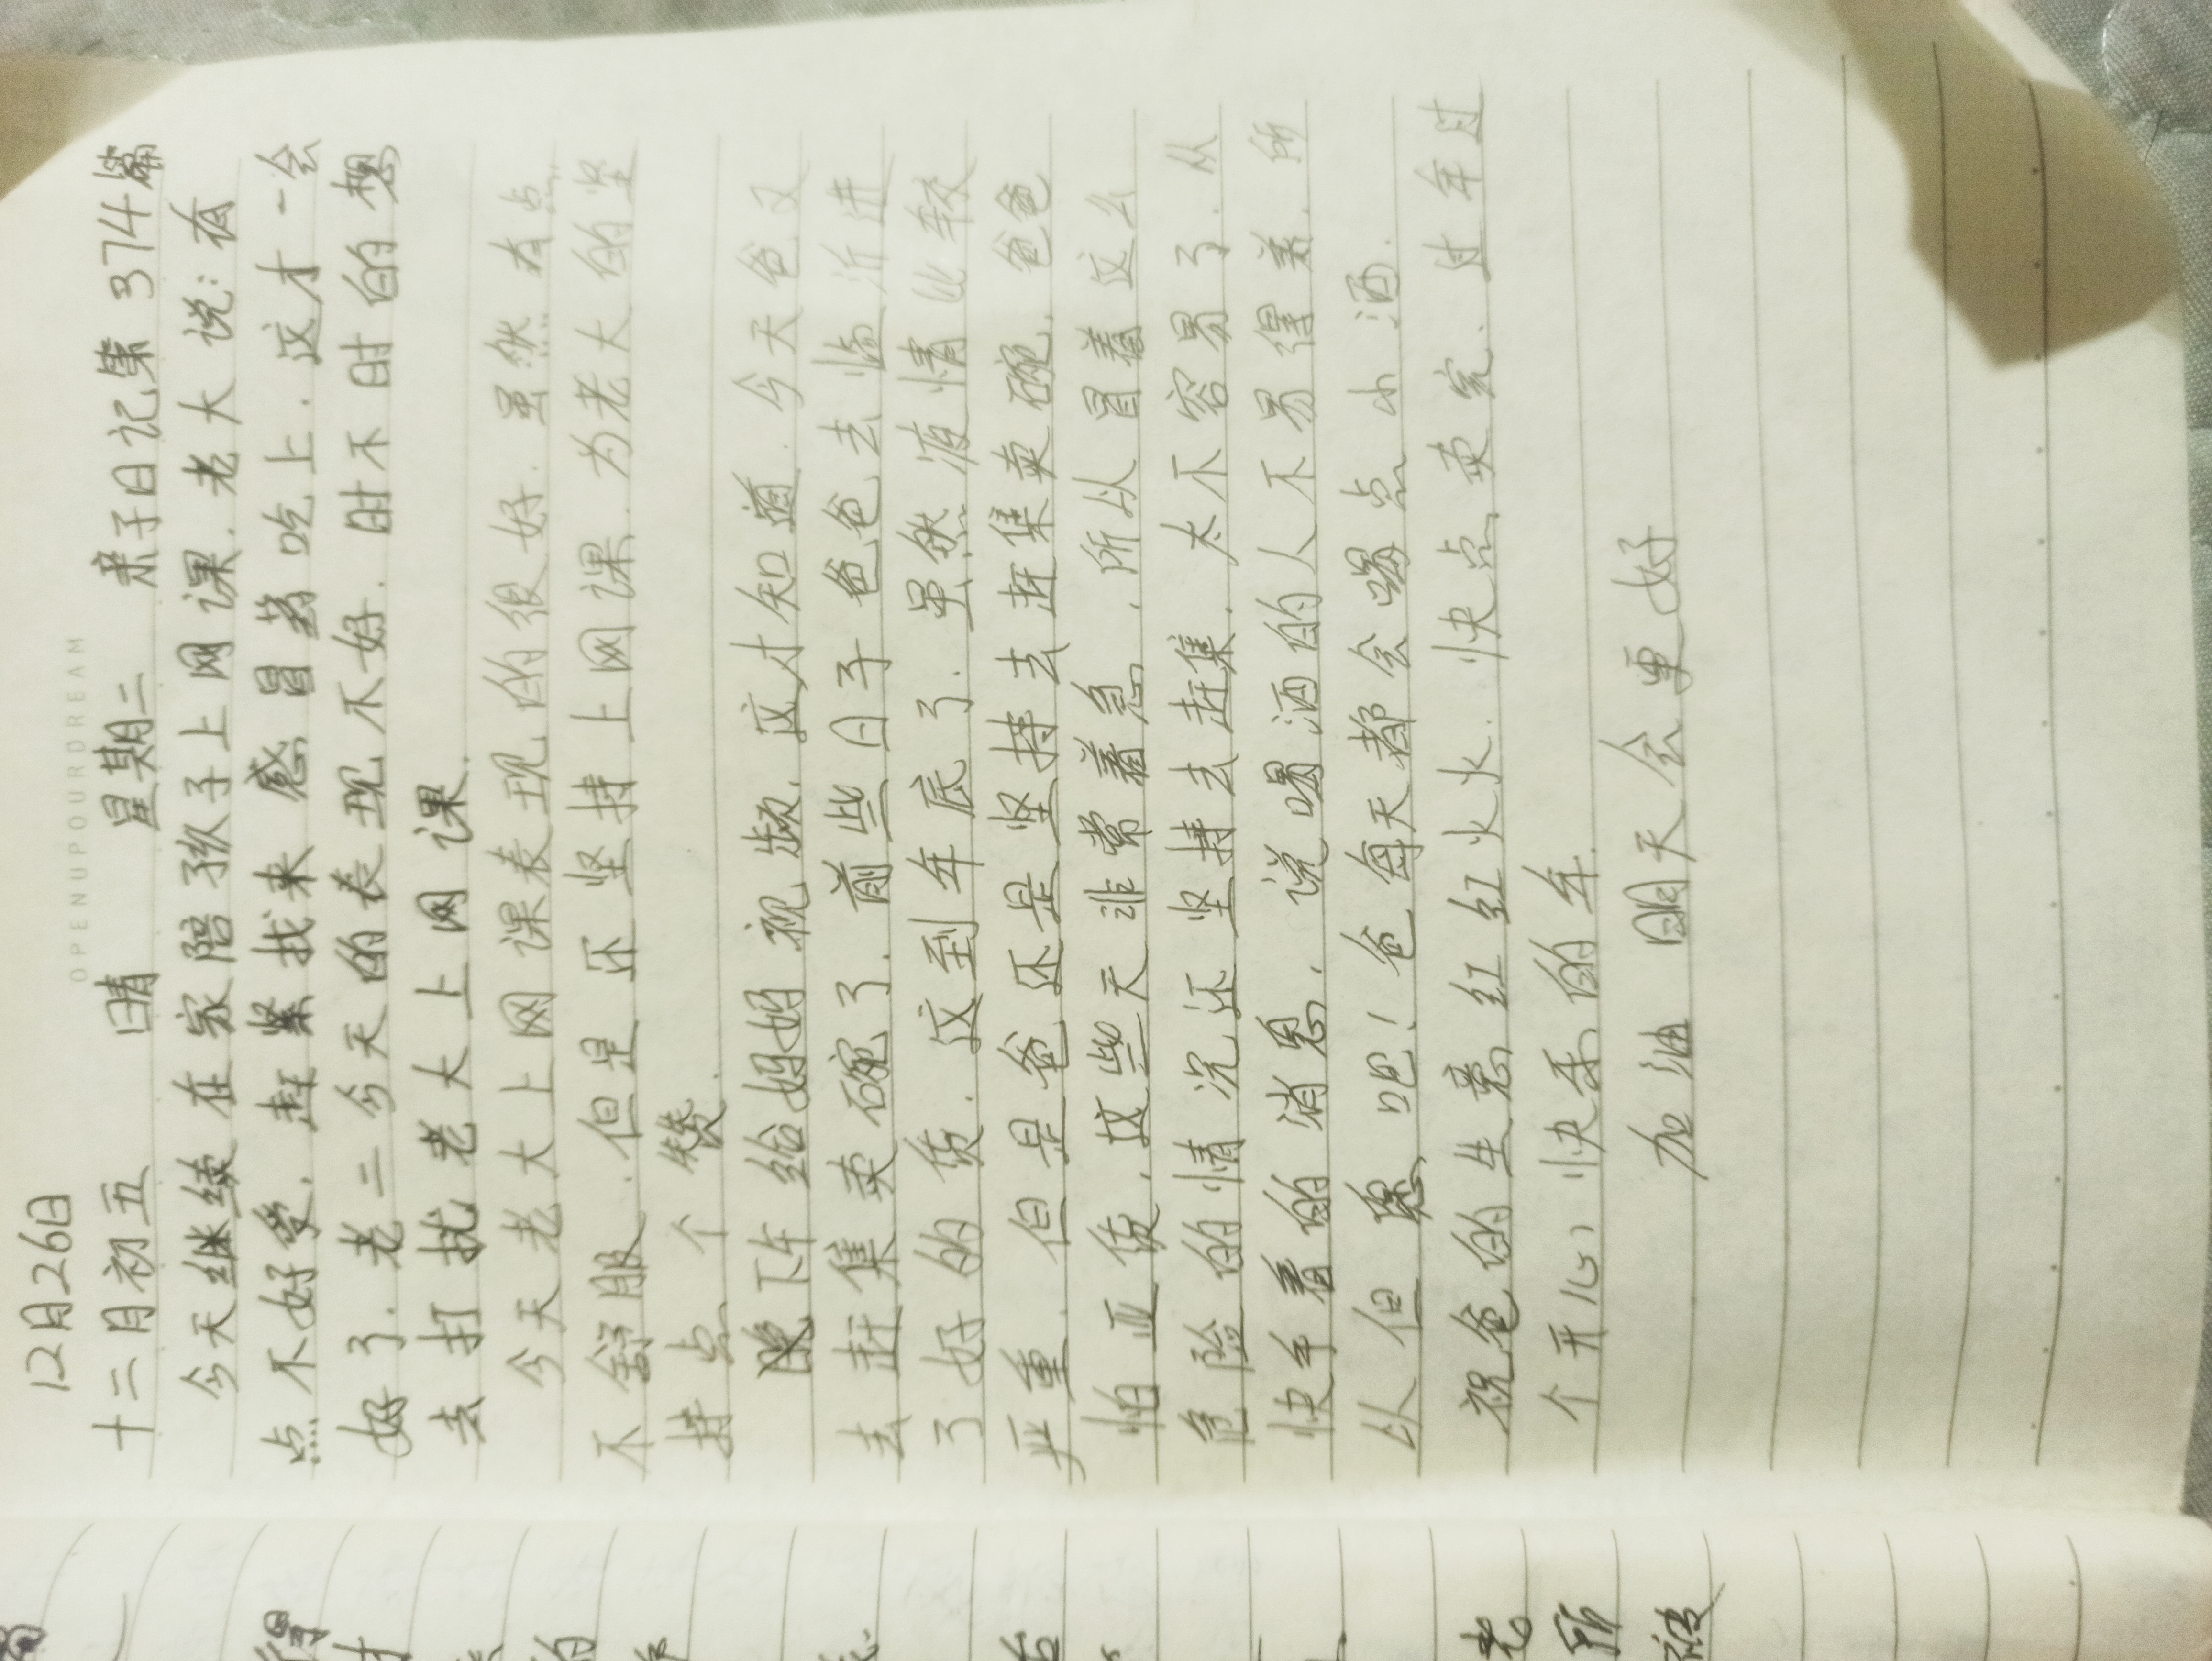 OPENUPOURDREAM
12月26日
十二月初五 晴 星期二 亲子日记第374篇
今天继续在家陪孩子上网课.老大说:有
点不好受.赶紧找来感冒药吃上.这才一会
好了.老二今天的表现不好.时不时的想
去打扰老大上网课.
今天老大上网课表现的很好.虽然有点
不舒服.但是还坚持上网课.为老大的坚
持点个赞.
晚下午给妈妈视频.这才知道.今天爸又
去赶集卖碗了.前些日子爸爸去临沂进
了好的货.这到年底了.虽然液情比较
严重.但是爸还是坚持去赶集卖碗.爸爸
怕亚货.这些天非常着急.所以冒着这么
危险的情况还坚持去赶集.太不容易了.从
快手看的消息.说喝酒的人不易得羔.所
以但愿吧!爸每天都会喝点小酒.
祝爸的生意红红火火.快点卖完.过年过
个开心快乐的年.
加油 明天会更好
得
的
老
所